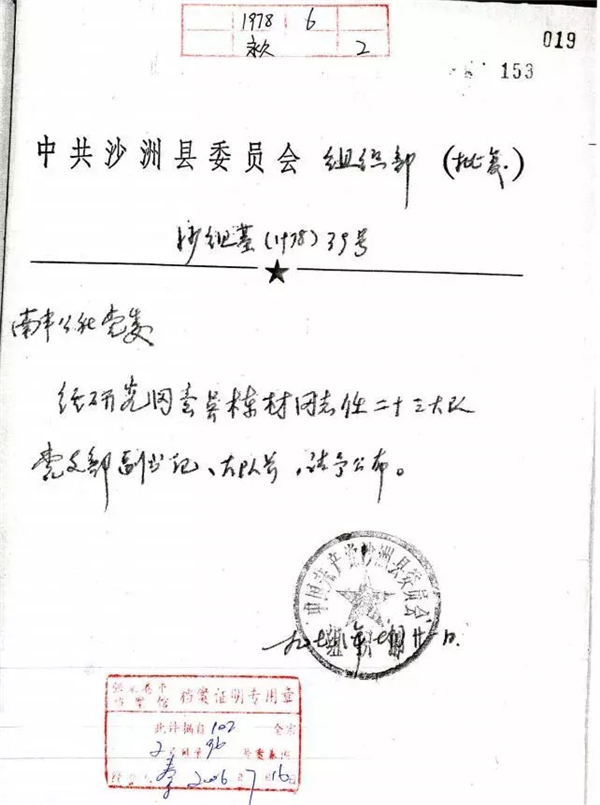 1978 6
永久 2
019
153
中共沙洲县委员会 组织部 (批复)
沙组基(1978)39号
南丰公社党委
经研究同意吴栋材同志任二十三大队
党支部副书记、大队长,请予公布。
中国共产党沙洲县委员会
组织部
一九七八年七月廿一日.
张家港市
档案馆 档案证明专用章
此件摘自102全宗
2 36
2006年7月16日